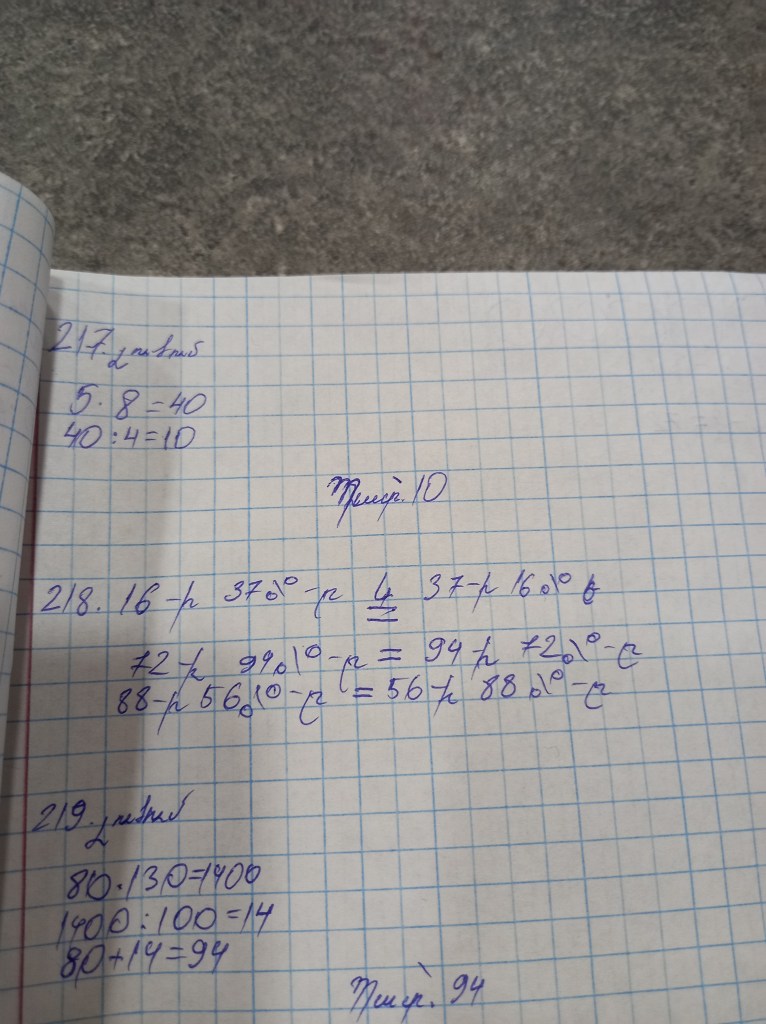 217.
5 · 8 = 40
40 : 4 = 10
10
218. 16-ի 37%-ը = 37-ի 16%
72-ի 94%-ը = 94-ի 72%-ը
88-ի 56%-ը = 56-ի 88%-ը
219.
80 · 130 = 1400
1400 : 100 = 14
80 + 14 = 94
94